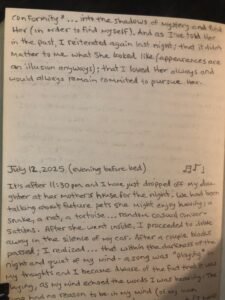 conformity" ... into the shadows of mystery and find
Her (in order to find myself). And as I've told Her
in the past, I reiterated again last night; that it didn't
matter to me what She looked like (appearances are
an illusion anyways); that I loved Her always and
would always remain commited to pursue Her.
July 12, 2025 (evening before bed) ♫♪
It's after 11:30 pm and I have just dropped off my dau-
ghter at her mother's house for the night. We had been
talking about future pets she might enjoy having; a
snake, a rat, a tortoise... random casual conver-
sations. After she went inside, I proceeded to drive
away in the silence of my car. After a couple blocks
passed, I realized ... that within the darkness of the
night and quiet of my mind - a song was "playing" in
my thoughts and I became aware of the fact that it was
playing, as my mind echoed the words I was hearing. The
had no reason to be in my mind (of my own